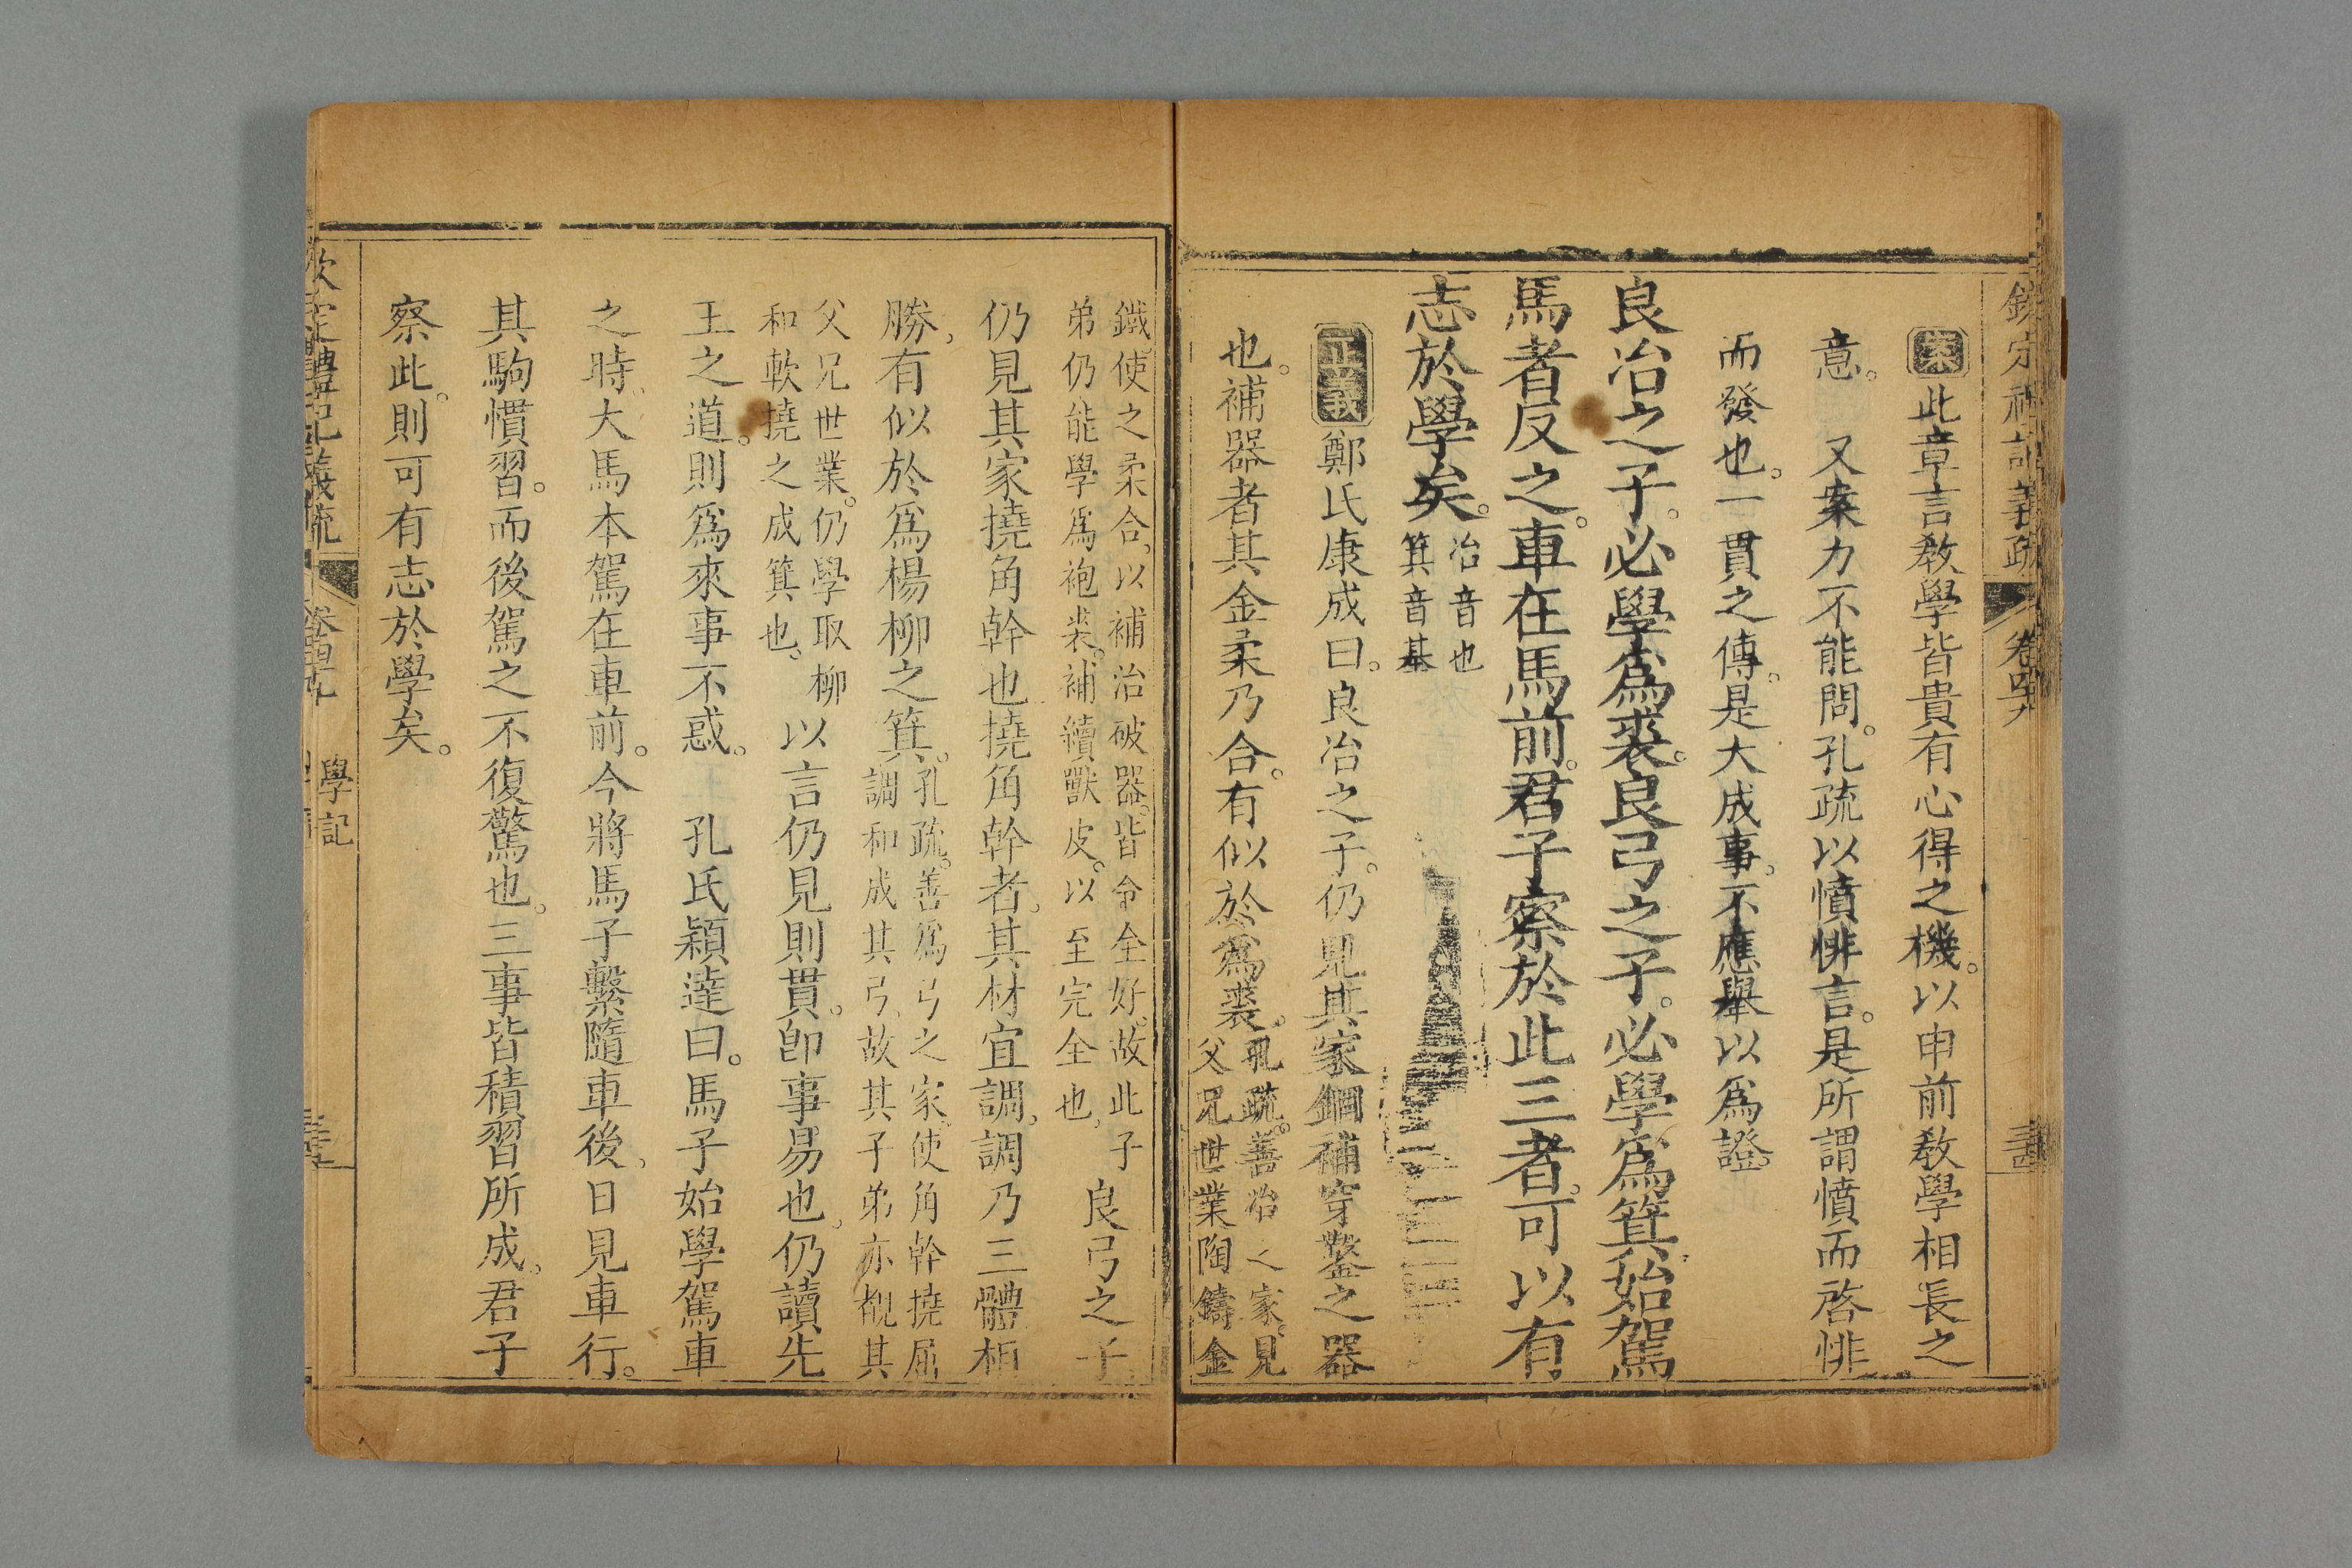 欽定禮記義疏 卷四十九
案此章言敎學皆貴有心得之機。以申前敎學相長之
意。 又案力不能問。孔疏以憤悱言。是所謂憤而啓悱
而發也。一貫之傳。是大成事。不應舉以爲證。
良冶之子。必學爲裘。良弓之子。必學爲箕。始駕
馬者反之。車在馬前。君子察於此三者。可以有
志於學矣。
冶音也
箕音基
正義鄭氏康成曰。良冶之子。仍見其家錮補穿鑿之器
也。補器者其金柔乃合。有似於爲裘。
孔疏。善冶之家。見
父兄世業陶鑄金
鐵。使之柔合。以補治破器。皆令全好。故此子
弟仍能學爲袍裘。補續獸皮。以至完全也。
良弓之子
仍見其家撓角幹也。撓角幹者。其材宜調。調乃三體相
勝。有似於爲楊柳之箕。
孔疏。善爲弓之家。使角幹撓屈
調和成其弓。故其子弟亦覩其
父兄世業。仍學取柳
和軟撓之成箕也。
以言仍見則貫。卽事易也。仍讀先
王之道。則爲來事不惑。 孔氏穎達曰。馬子始學駕車
之時。大馬本駕在車前。今將馬子繫隨車後。日見車行。
其駒慣習。而後駕之不復驚也。三事皆積習所成。君子
察此。則可有志於學矣。
學記